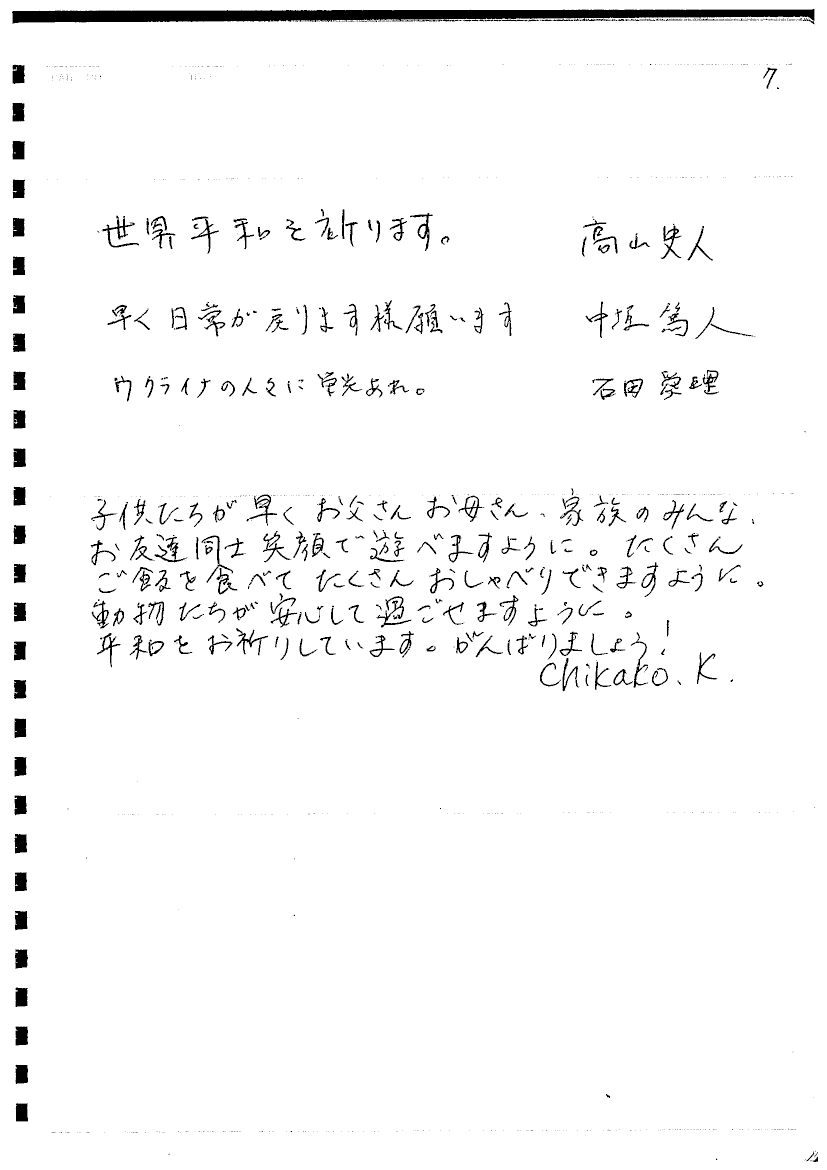 7.
世界平和を祈ります。 高山史人
早く日常が戻ります様願います 中垣篤人
ウクライナの人々に栄光あれ。 石田愛理
子供たちが早くお父さんお母さん、家族のみんな、
お友達同士笑顔で遊べますように。たくさん
ご飯を食べてたくさんおしゃべりできますように。
動物たちが安心して過ごせますように。
平和をお祈りしています。がんばりましょう!
Chikako.K.